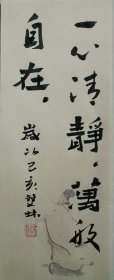 一心清靜。萬般
自在。
歲次己亥